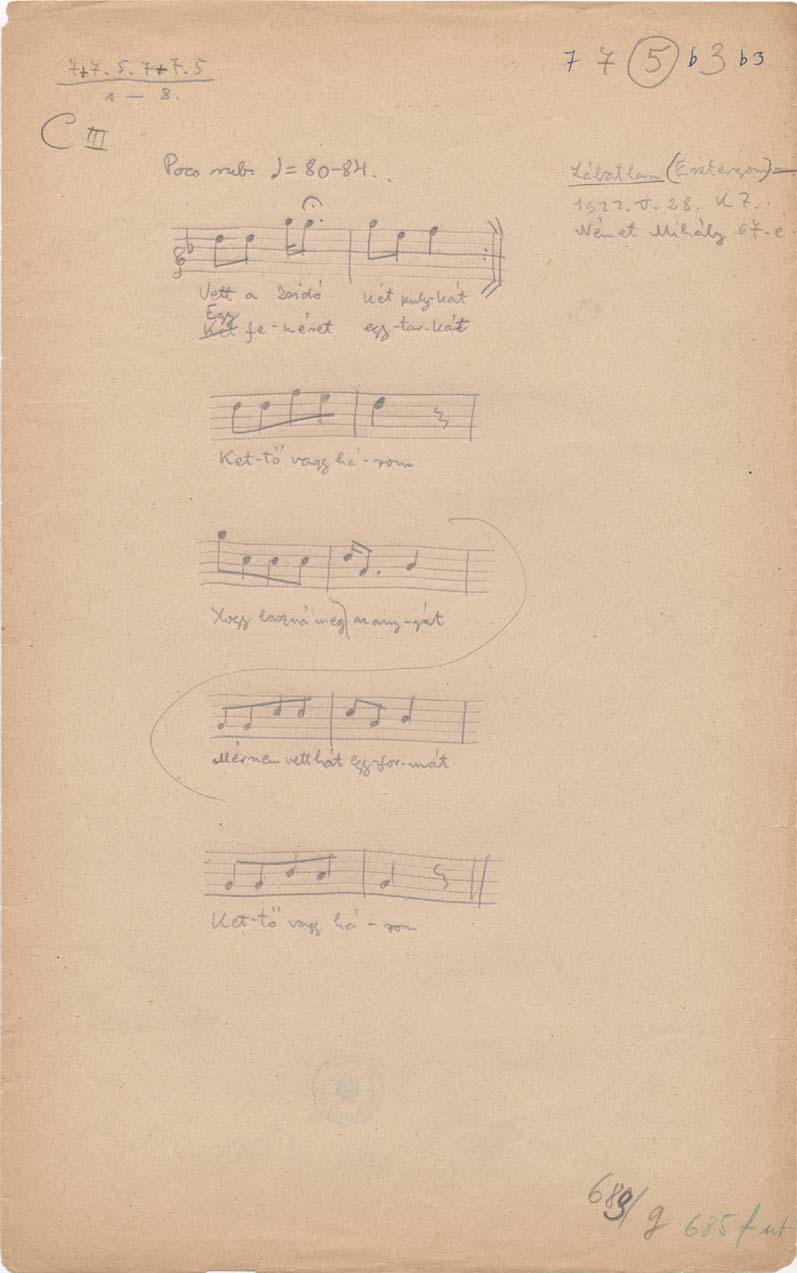 7+7. 5. 7+7. 5
1 — 8.
7 7 5 b3 b3
C III
Poco rub. ♩= 80-84..
Lábatlan (Esztergom)
1922. V. 28. K Z.
Német Mihály 67. é
Vett a zsidó két puly-kát
Egy
Két fe-héret egy-tar-kát
Ket-tő vagy há-rom
Hogy baszná meg az any-ját
Mér nem vett hát egy-for-mát
Ket-tő vagy há-rom
689/g 685 f